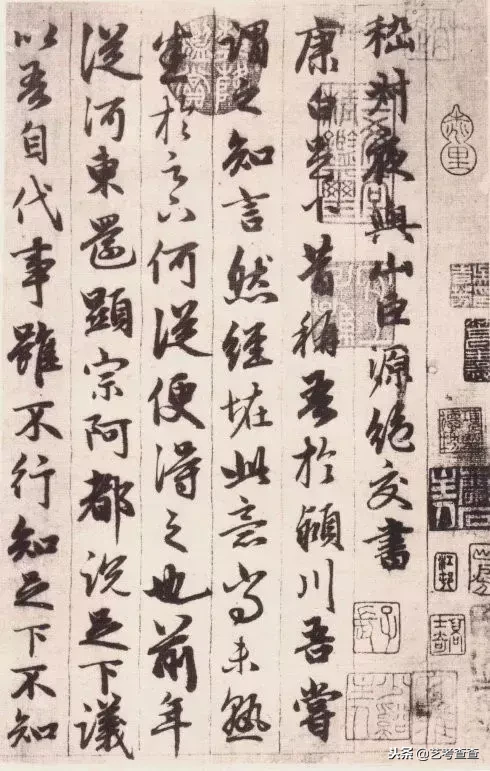 嵇叔夜與山巨源絕交書
康白足下昔稱吾於潁川吾嘗
謂之知言然經怪此意尚未熟
悉於足下何從便得之也前年
從河東還顯宗阿都說足下議
以吾自代事雖不行知足下不知
江邨
头条 @艺考查查